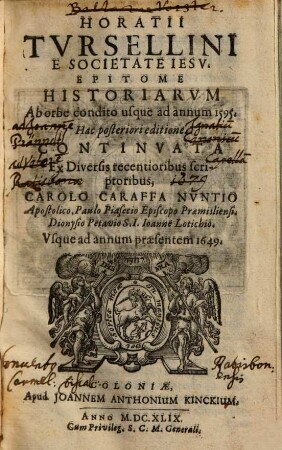 HORATII
TVRSELLINI
E SOCIETATE IESV.
EPITOME
HISTORIARVM
Ab orbe condito usque ad annum 1595.
Hac posteriori editione
CONTINVATA
Ex Diversis recentioribus scri-
ptoribus,
CAROLO CARAFFA NVNTIO
Apostolico, Paulo Piasecio Episcopo Præmiliensi,
Dionysio Petavio S.I. Ioanne Lotichio.
Vsque ad annum præsentem 1649.
Ratisbon-
ensis
COLONIÆ,
Apud JOANNEM ANTHONIUM KINCKIUM,
ANNO M.DC.XLIX.
Cum Privileg. S. C. M. Generali.